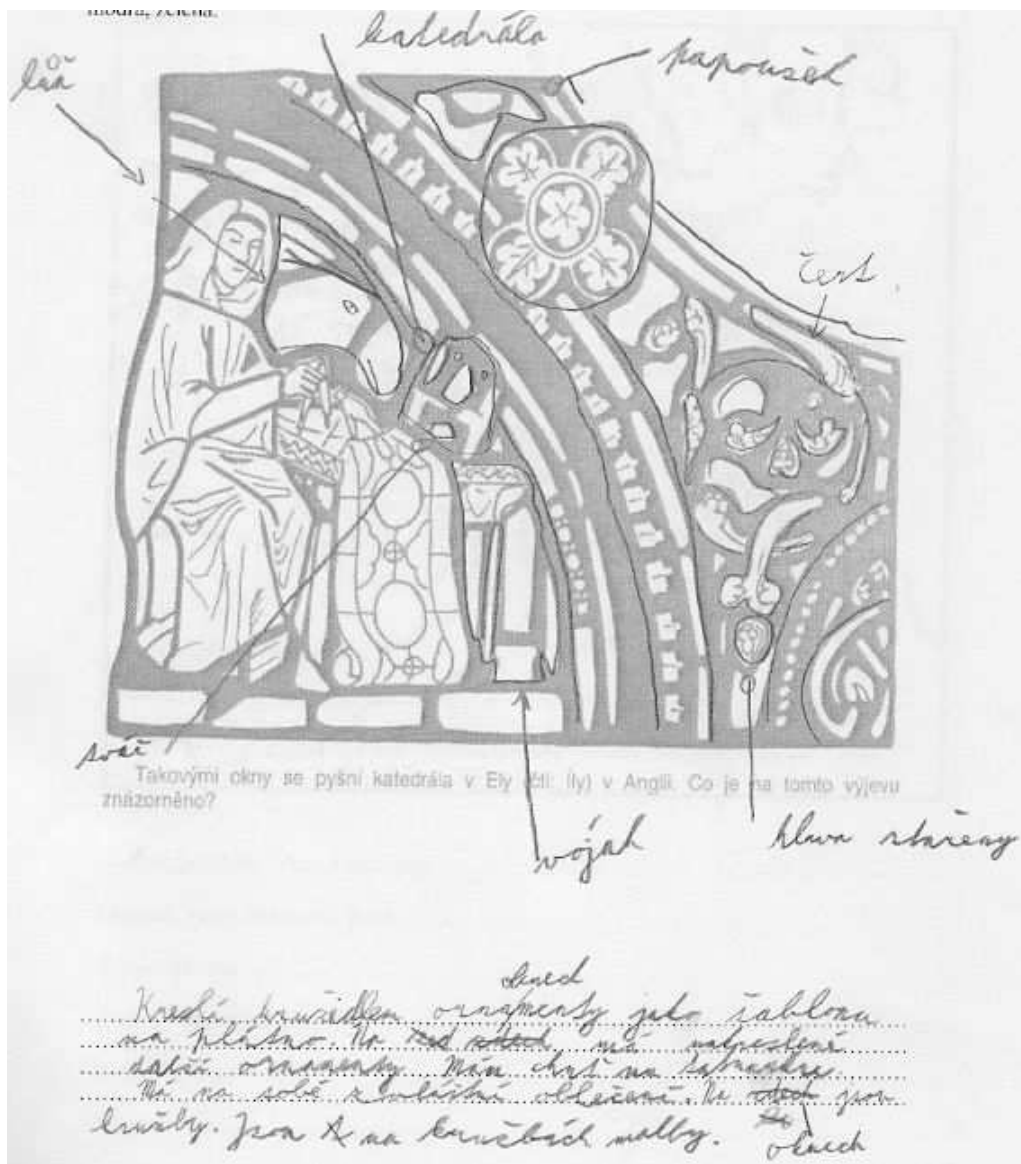 modrá, zelená.
katedrála
papoušek
čert
svář
Takovými okny se pyšní katedrála v Ely (čti: íly) v Anglii. Co je na tomto výjevu
znázorněno?
voják
hlava stařeny
oknech
Kreslí kružidlem ornamenty jako šablonu
na plátno. Na má
další ornamenty. Mám chuť na
Má na sobě zvláštní oblečení. Na jsou
kružby. Jsou na kružbách malby.
oknech